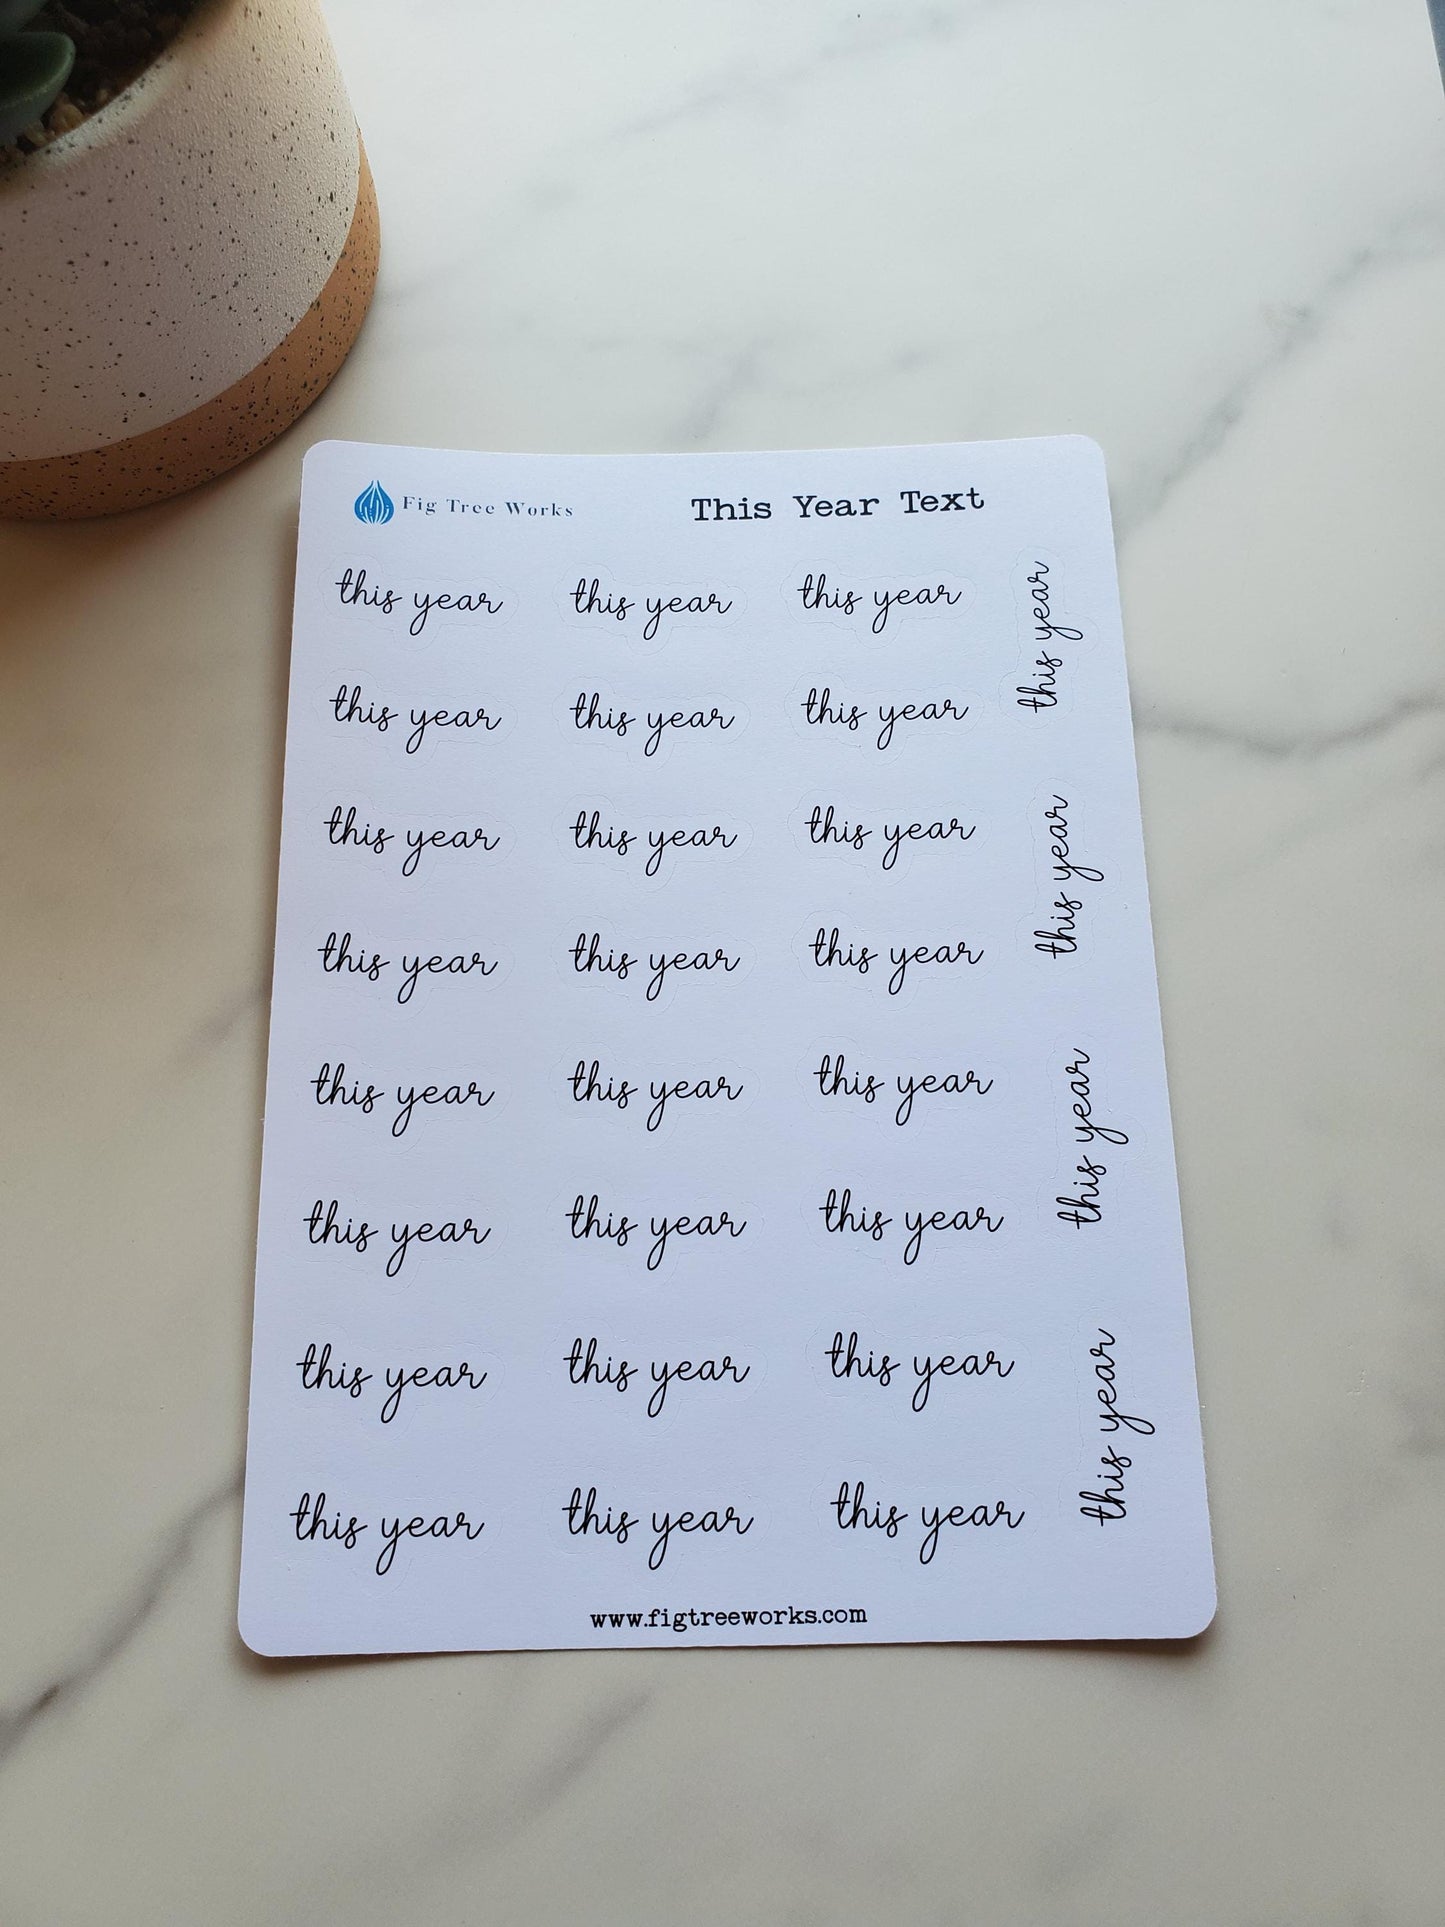 Fig Tree Works
This Year Text
this year this year this year
this year
this year this year this year
this year this year this year
this year
this year this year this year
this year this year this year
this year
this year this year this year
this year this year this year
this year
this year this year this year
www.figtreeworks.com